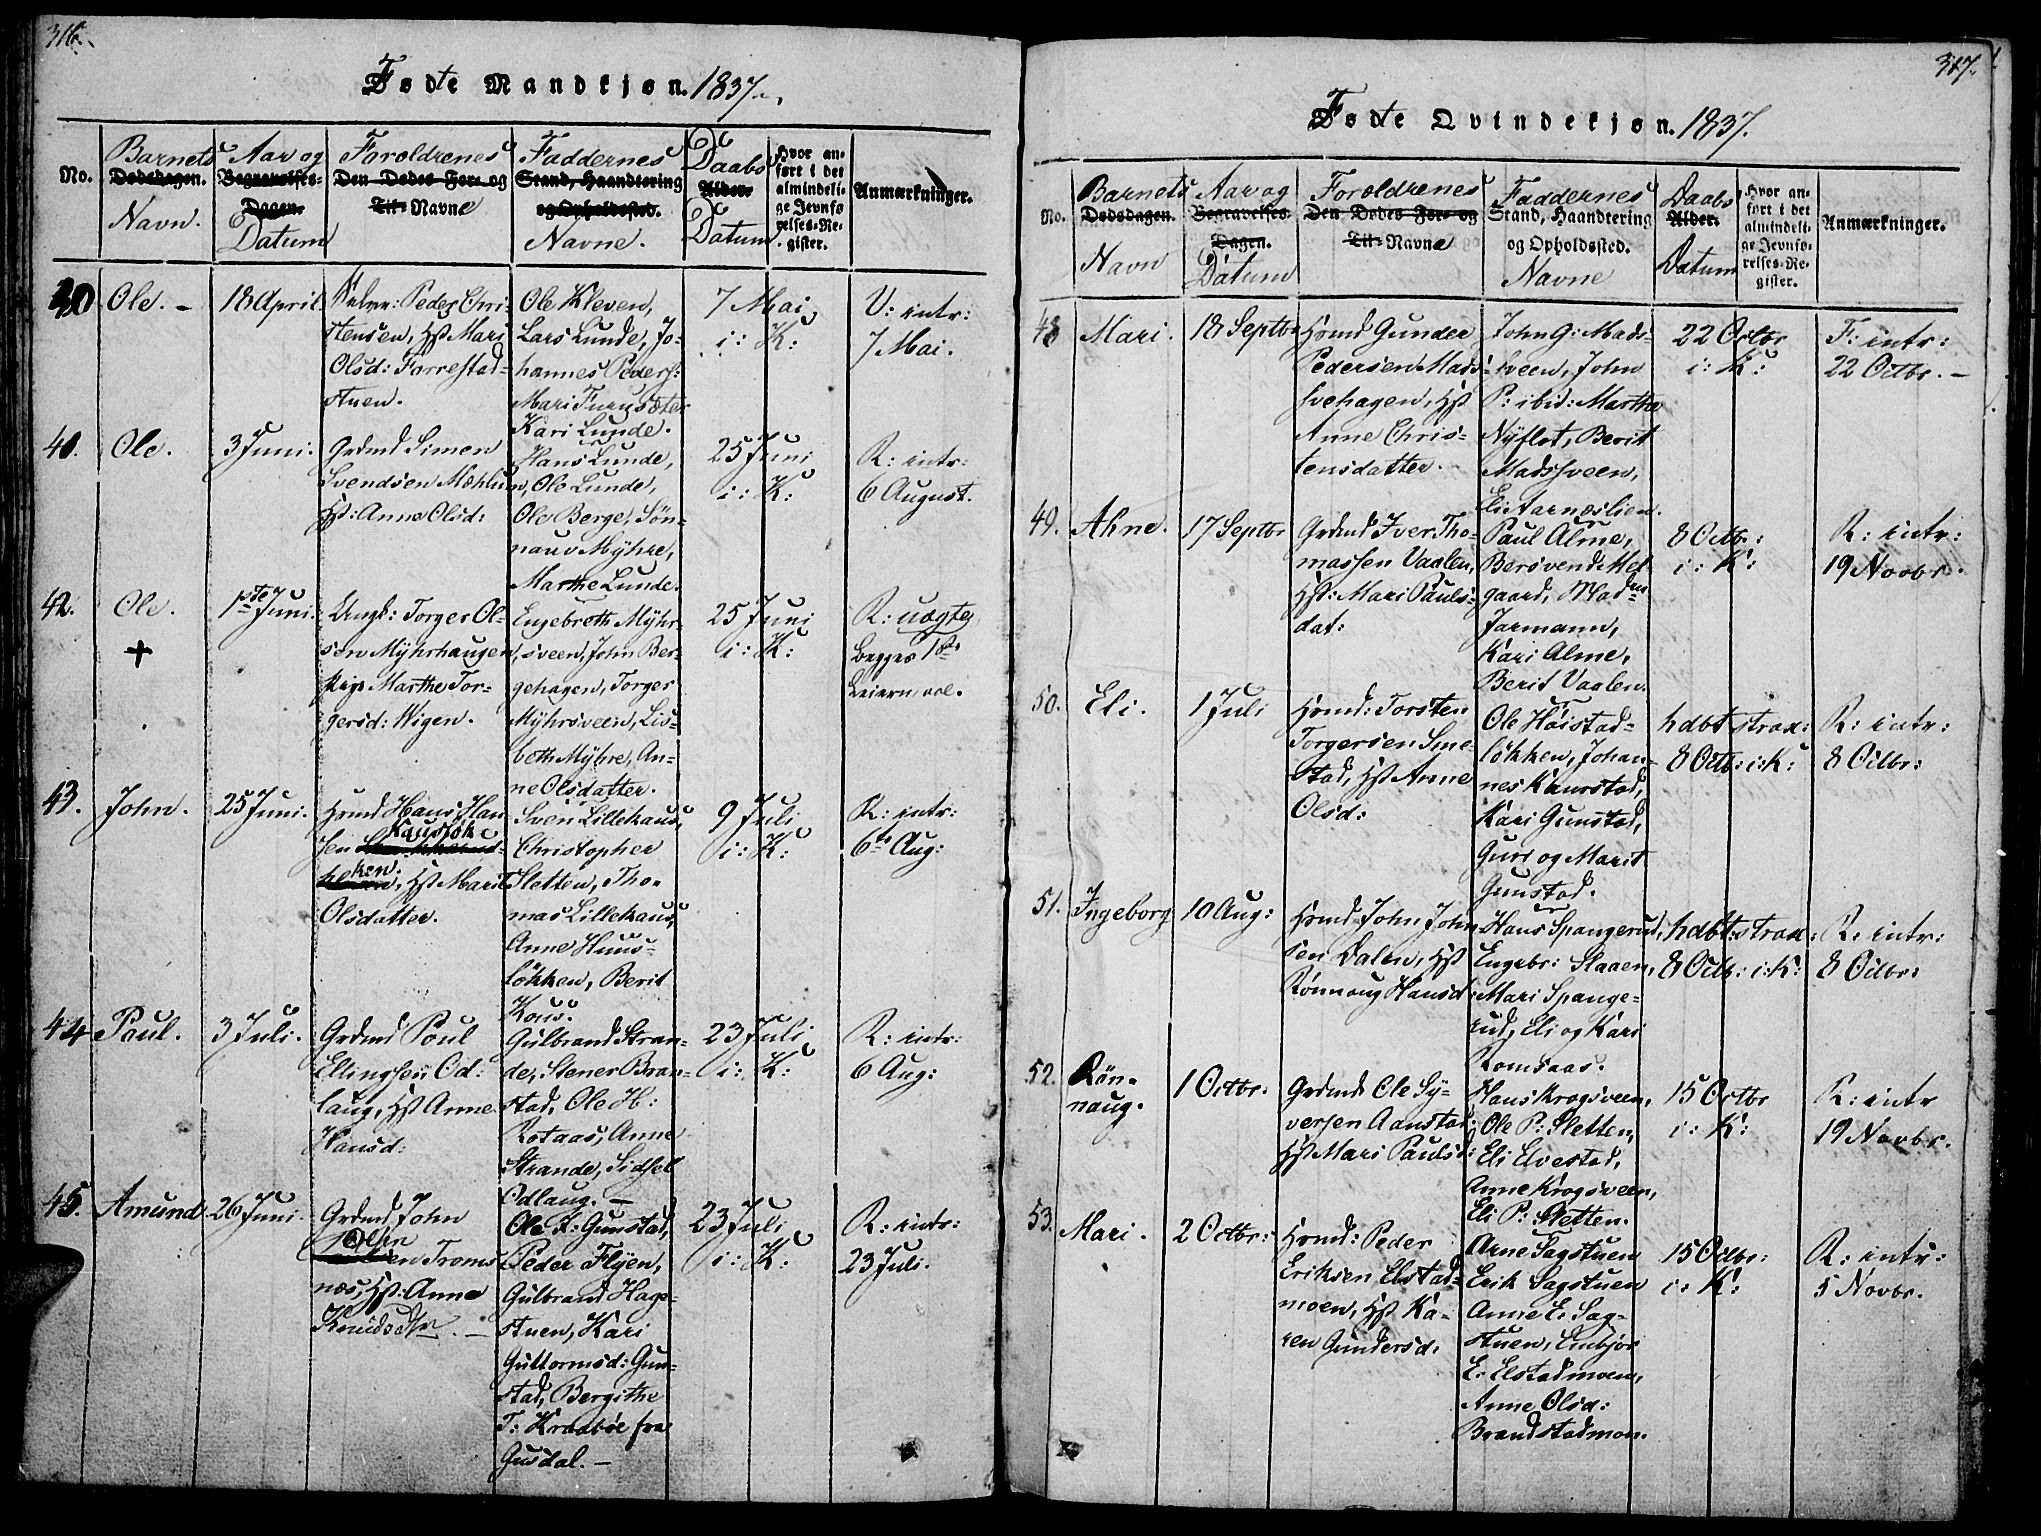 316.
Fødte Mandkjøn. 1837.
No.
Barnets
Dødsdagen.
Navn.
Aar og
Begravelses-
Dagen.
Datum
Foreldrenes
Den Dødes For- og
Til- Navne
Faddernes
Stand, Haandtering
og Opholdssted.
Navne.
Daabs
Alder.
Datum.
Hvor an-
ført i det
almindeli-
ge Jevnfø
relses-Re-
gister.
Anmærkninger.
40
Ole. –
18 April
Peder Chri-
stensen, Hst Mari
Olsd: Forrestad-
stuen.
Ole Kleven,
Lars Lunde, Jo-
hannes Peders:
Mari Furusæter
Kari Lunde.
7 Mai
i: K:
V: intr:
7 Mai.
41.
Ole.
3 Juni.
Grdmd Simen
Svendsen Mæhlum,
Hst: Anne Olsd:
Hans Lunde,
Ole Lunde,
Ole Berge, Søn-
nauv Mÿhre,
Marthe Lunde.
25 Juni
i: K:
R: intr:
6 August.
42.
Ole.
+
1ste Juni.
Ungk: Torger Ol-
sen Mÿhrhaugen,
Pige Marthe Tor-
gersd: Wigen.
Engebreth Mÿhr-
sveen, John Ber-
gehagen, Torger
Mÿhrsveen, Lis-
beth Mÿhre, An-
ne Olsdatter.
25 Juni
i: K:
R: uægte,
begges 1ste
Leiermaal.
43.
John.
25 Juni.
Hsmd Hans Han
sen
Kausløk
ken, Hst Marit
Olsdatter.
Sven Lillekaus,
Christopher
Sletten, Tho-
mas Lillekaus,
Anne Huus-
løkken, Berit
Kous.
9 Juli
i: K:
R: intr:
6te Aug:
44
Paul.
3 Juli.
Grdmd Poul
Ellingsen Od-
laug, Hst Anne
Hansd:
Gulbrand Stran-
de, Stener Bran-
stad, Ole H:
Rotaas, Anne
Strande, Sidsel
Odlaug. –
23 Juli
i: K:
R: intr:
6 Aug:
45.
Amund.
26 Juni.
Grdmd John
en Troms
næs, Hst: Anne
Knudsdtr. –
Ole K: Gunstad,
Peder Flÿen,
Gulbrand Hage-
stuen, Kari
Guttormsd: Gun-
stad, Bergithe
T: Kraabøe fra
Gusdal. –
23 Juli
i: K:
R: intr:
23 Juli.
317.
Fødte Qvindekjøn. 1837.
No.
Barnets
Dødsdagen.
Navn
Aar og
Begravelses-
Dagen.
Datum
Foreldrenes
Den Dødes For- og
Til- Navne
Faddernes
Stand, Haandtering
og Opholdssted.
Navne
Daabs
Alder.
Datum
Hvor an-
ført i det
almindeli-
ge Jevnfø-
relses-Re-
gister.
Anmærkninger.
48
Mari.
18 Septbr
Hsmd Gunder
Pedersen Mads-
svehagen, Hst
Anne Chris-
tensdatter.
John G: Mads-
sveen, John
P: ibid: Marthe
Nÿflot, Berit
Madssveen,
Eli Aarnæslien.
22 Octbr
i: K:
F: intr:
22 Octbr. –
49.
Ahne.
17 Septbr
Grdmd Iver Tho-
massen Vaalen,
Hst: Mari Pauls-
dat:
Paul Alme,
Bersvend Mel-
gaard, Madm
Jarmann,
Kari Alme,
Berit Vaalen.
8 Octbr:
i: K:
R: intr:
19 Novbr.
50.
Eli.
1 Juli
Hsmd: Torsten
Torgersen Sme-
stad, Hst Anne
Olsd:
Ole Høistad-
løkken, Johan-
nes Kaurstad,
Kari Gunstad,
Guri og Marit
Gunstad.
hdbt strax:
8 Octb: i: K:
R: intr:
8 Octbr:
51.
Ingeborg
10 Aug:
Hsmd John John
sen Dalen, Hst
Rønnoug Hansd:
Hans Spangerud,
Engebr: Slaaen,
Mari Spange-
rud, Eli og Kari
Romsaas.
hdbt: strax:
8 Octb: i: K:
R: intr:
8 Octbr:
52.
Røn-
naug.
1 Octbr.
Grdmd Ole Sÿ-
versen Aanstad,
Hst Mari Paulsd:
Hans Krogsveen,
Ole P: Sletten,
Eli Elvestad,
Anne Krogsveen,
Eli P: Sletten.
15 Octbr
i: K:
R: intr
19 Novbr.
53.
Mari.
2 Octbr:
Hsmd: Peder
Eriksen Elstad-
moen, Hst Ka-
ren Gundersd.
Arne Sagstuen
Erik Sagstuen
Anne E: Sag-
stuen, Embjør
E: Elstadmoen,
Anne Olsd:
Brandstadmon.
15 Octbr:
i: K:
R: intr:
5 Novbr.